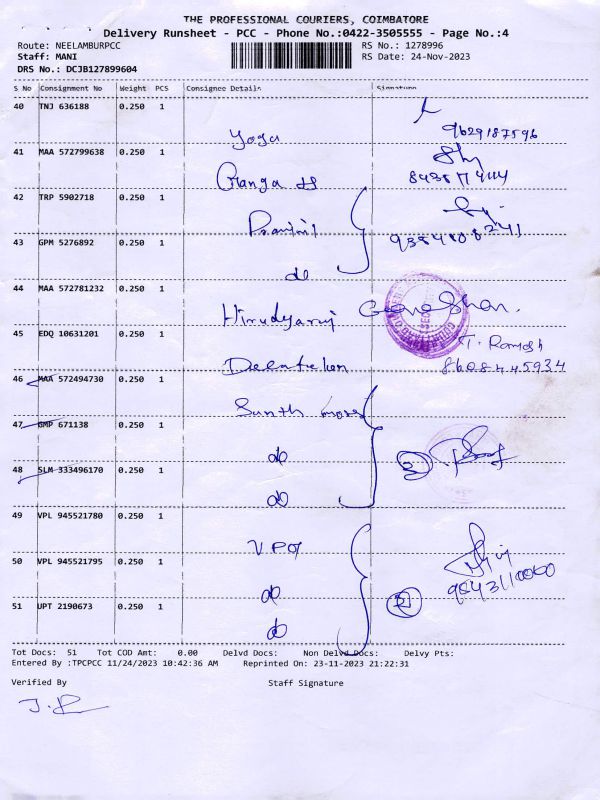 THE PROFESSIONAL COURIERS, COIMBATORE
Delivery Runsheet - PCC - Phone No.:0422-3505555 - Page No.:4
Route: NEELAMBURPCC RS No.: 1278996
Staff: MANI RS Date: 24-Nov-2023
DRS No.: DCJB127899604
S No Consignment No Weight PCS Consignee Details Signature
40 TNJ 636188 0.250 1
Yoga 9629187596
41 MAA 572799638 0.250 1
Ganga
42 TRP 5902718 0.250 1
43 GPM 5276892 0.250 1
do
44 MAA 572781232 0.250 1
Ganeshan.
45 EDQ 10631201 0.250 1
T. Ramesh
8608445934
46 MAA 572494730 0.250 1
47 GMP 671138 0.250 1
do
48 SLM 333496170 0.250 1
2
do
49 VPL 945521780 0.250 1
50 VPL 945521795 0.250 1
do
51 UPT 2190673 0.250 1
do
Tot Docs: 51 Tot COD Amt: 0.00 Delvd Docs: Non Delvd Docs: Delvy Pts:
Entered By :TPCPCC 11/24/2023 10:42:36 AM Reprinted On: 23-11-2023 21:22:31
Verified By Staff Signature